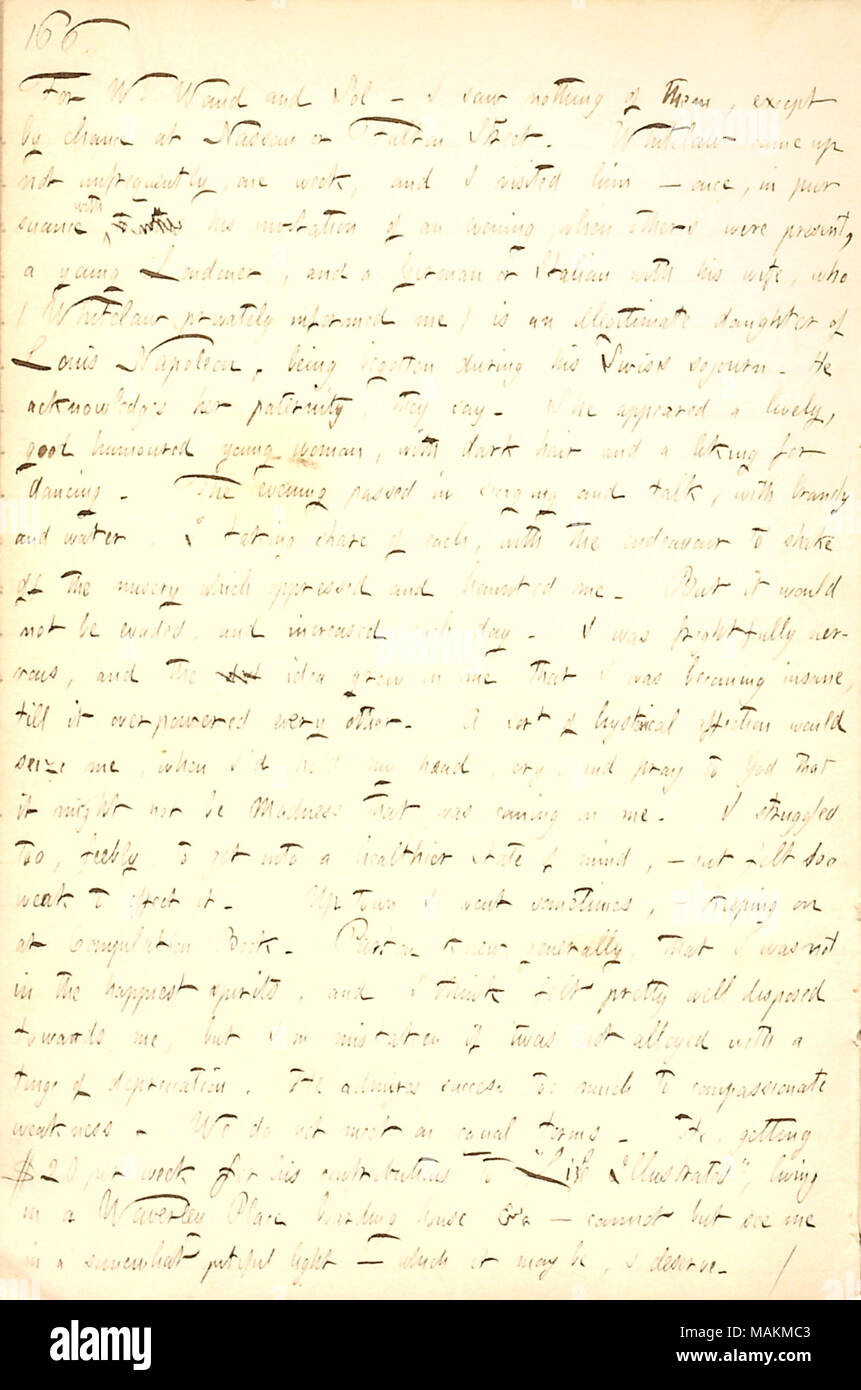 166.
For W. Waud and Sol — I saw nothing of them, except
by chance at Nassau or Fulton Street. Whitelaw came up
not unfrequently, one week, and I visited him — once, in pur
suance with his invitation of an evening, when others were present,
a young Londoner, and a German or Italian with his wife, who
(Whitelaw privately informed me) is an illegitimate daughter of
Louis Napoleon, being begotten during his Swiss sojourn. He
acknowledges her paternity, they say. She appeared a lively,
good humoured young woman, with dark hair and a liking for
dancing. The evening passed in singing and talk, with brandy
and water. I taking share of each, with the endeavour to shake
off the misery which oppressed and haunted me. But it would
not be evaded, and increased each day. I was frightfully ner-
vous, and the idea grew in me that I was becoming insane,
till it overpowered every other. A sort of hysterical affection would
seize me, when I'd hold my head, cry, and pray to God that
it might not be Madness that was coming on me. I struggled
too, feebly, to get into a healthier state of mind, — but felt too
weak to effect it. Up town I went sometimes, — keeping on
at compilation Book. Parton knew generally, that I was not
in the happiest spirits, and I think felt pretty well disposed
towards me, but I'm mistaken if twas not alloyed with a
tinge of depreciation. He admires success too much to compassionate
weakness. We do not meet on equal terms. He, getting
$20 per week for his contributions to "Life Illustrated", living
in a Waverley Place boarding house &c — cannot but see me
in a somewhat pitiful light — which it may be, I deserve. /
alamy
Image ID: MAKMC3
www.alamy.com